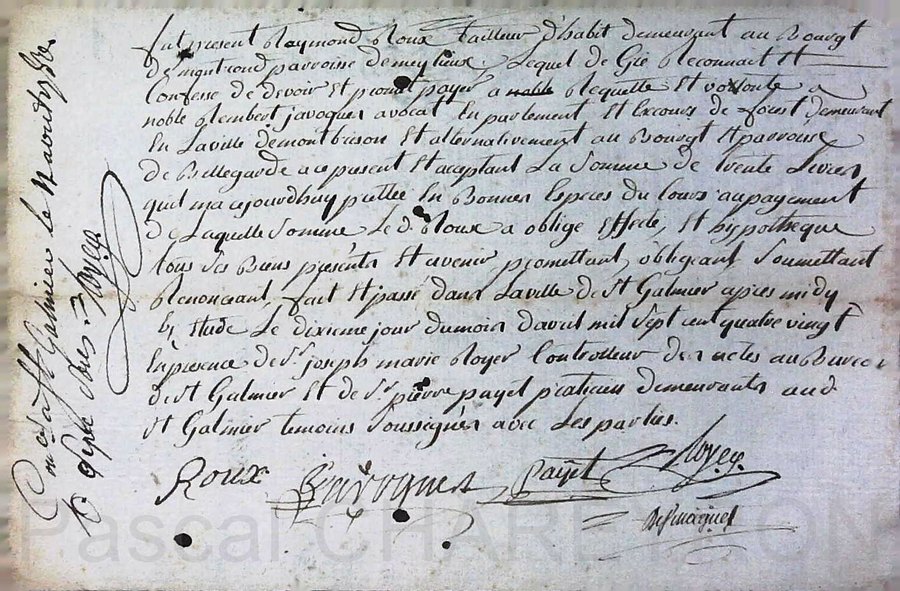 fut present Raymond Roux tailleur d'habit demeurant au Bourgt
de montrond parroisse demeylieux. Lequel de Gré Reconnait Et
Confesse de devoir Et promt payer a noble Requette Et volonté a
noble Rembert javogues avocat En parlement Et Excours de forest demeurant
En Laville demontbrison Et alternativement au Bourgt Et parroisse
de Bellegarde ace present Et aceptant La Somme de trente Livres
quil ma cejourdhuy pretée En Bonnes Especes du Cours au payement
de Laquelle Somme Le d. Roux a obligé Et hypotheque
tous Ses Biens presents Et avenir promettant, obligeant Soumettant
Renonceant, fait Et passé dans Laville de St Galmier apres midy
Etude Le dixieme jour dumois davril mil Sept cent quatre vingt
En presence de Sr joseph marie Royer Controlleur des actes au Bureau
de St Galmier Et de Sr pierre payet praticien demeurants aud.
St Galmier temoins Soussignés avec Les parties.
Roux Javogues Payet Royer
St Galmier le
Royer
Pascal CHAREYRON